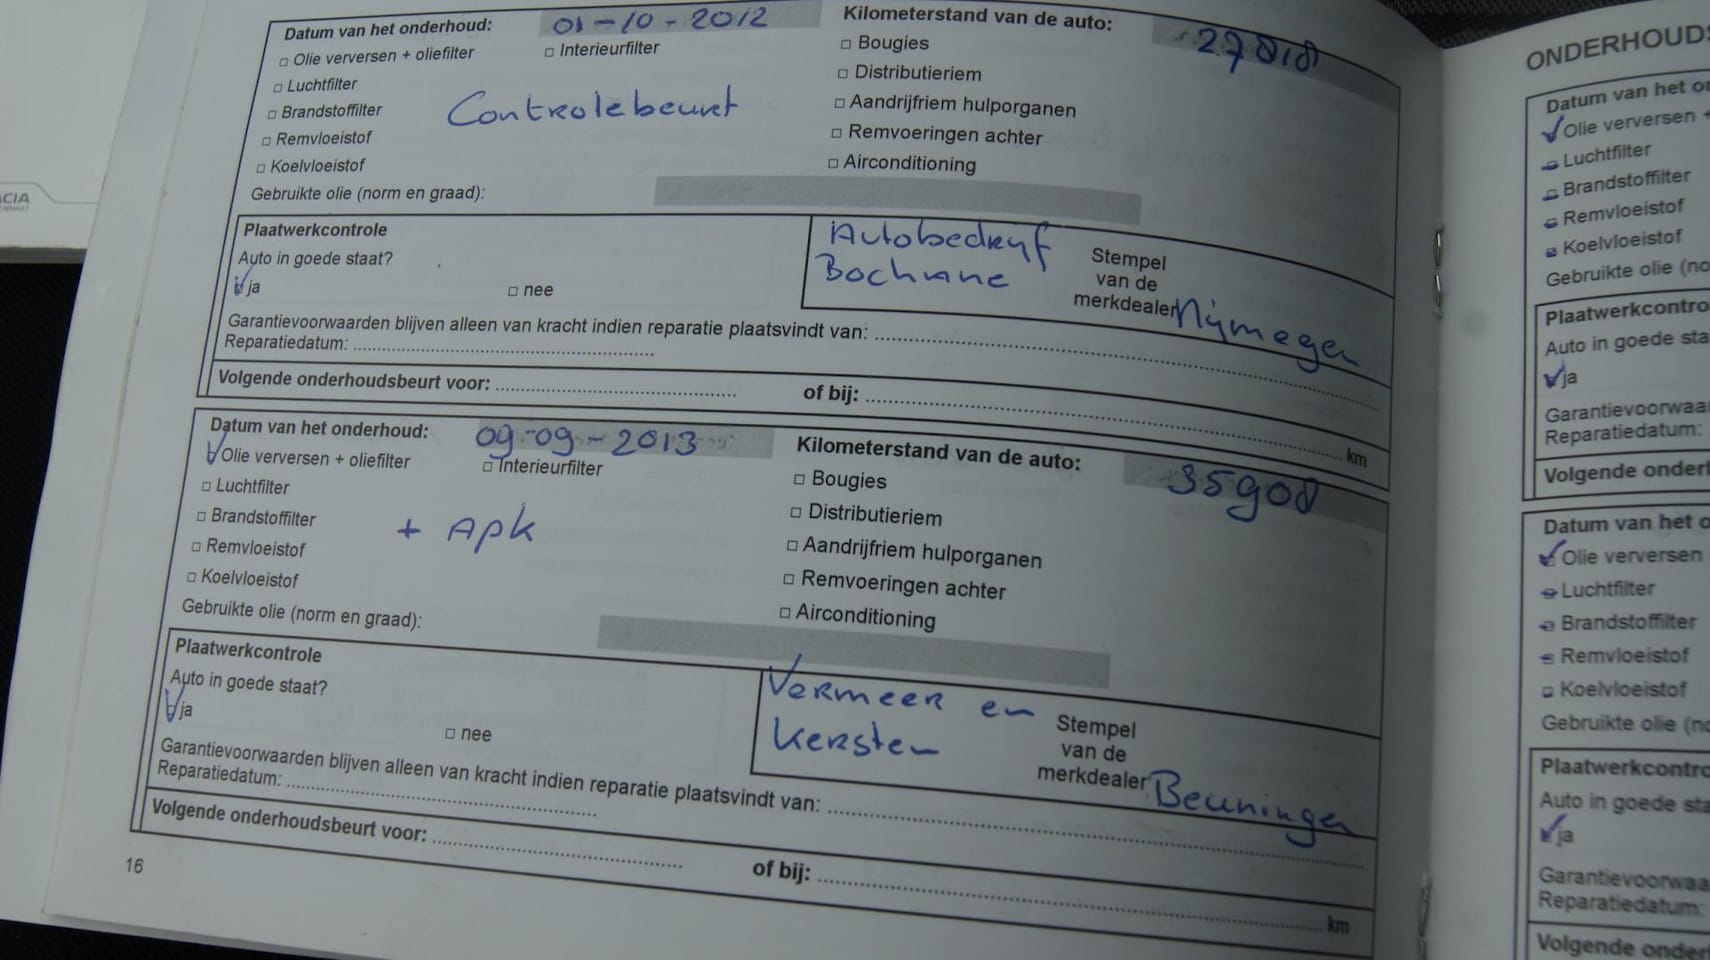 Datum van het onderhoud: 01-10-2012
Kilometerstand van de auto: 27818
□ Olie verversen + oliefilter
□ Interieurfilter
□ Bougies
□ Luchtfilter
□ Distributieriem
□ Brandstoffilter
Controlebeurt
□ Aandrijfriem hulporganen
□ Remvloeistof
□ Remvoeringen achter
□ Koelvloeistof
□ Airconditioning
Gebruikte olie (norm en graad):
Plaatwerkcontrole
Auto in goede staat?
ja
□ nee
Autobedryf
Bochane
Nijmegen
Stempel
van de
merkdealer
Garantievoorwaarden blijven alleen van kracht indien reparatie plaatsvindt van:
Reparatiedatum:
Volgende onderhoudsbeurt voor: of bij: km
Datum van het onderhoud: 09-09-2013
Kilometerstand van de auto: 35908
Olie verversen + oliefilter
□ Interieurfilter
□ Bougies
□ Luchtfilter
□ Distributieriem
□ Brandstoffilter
+ Apk
□ Aandrijfriem hulporganen
□ Remvloeistof
□ Remvoeringen achter
□ Koelvloeistof
□ Airconditioning
Gebruikte olie (norm en graad):
Plaatwerkcontrole
Auto in goede staat?
ja
□ nee
Vermeer en
Kersten
Beuningen
Stempel
van de
merkdealer
Garantievoorwaarden blijven alleen van kracht indien reparatie plaatsvindt van:
Reparatiedatum:
Volgende onderhoudsbeurt voor: of bij: km
16
ONDERHOUDS
Datum van het o
Olie verversen +
Luchtfilter
Brandstoffilter
Remvloeistof
Koelvloeistof
Gebruikte olie (no
Plaatwerkcontro
Auto in goede sta
ja
Garantievoorwaa
Reparatiedatum:
Volgende onder
Datum van het o
Olie verversen
Luchtfilter
Brandstoffilter
Remvloeistof
Koelvloeistof
Gebruikte olie (no
Plaatwerkcontro
Auto in goede sta
ja
Garantievoorwaa
Reparatiedatum:
Volgende onder